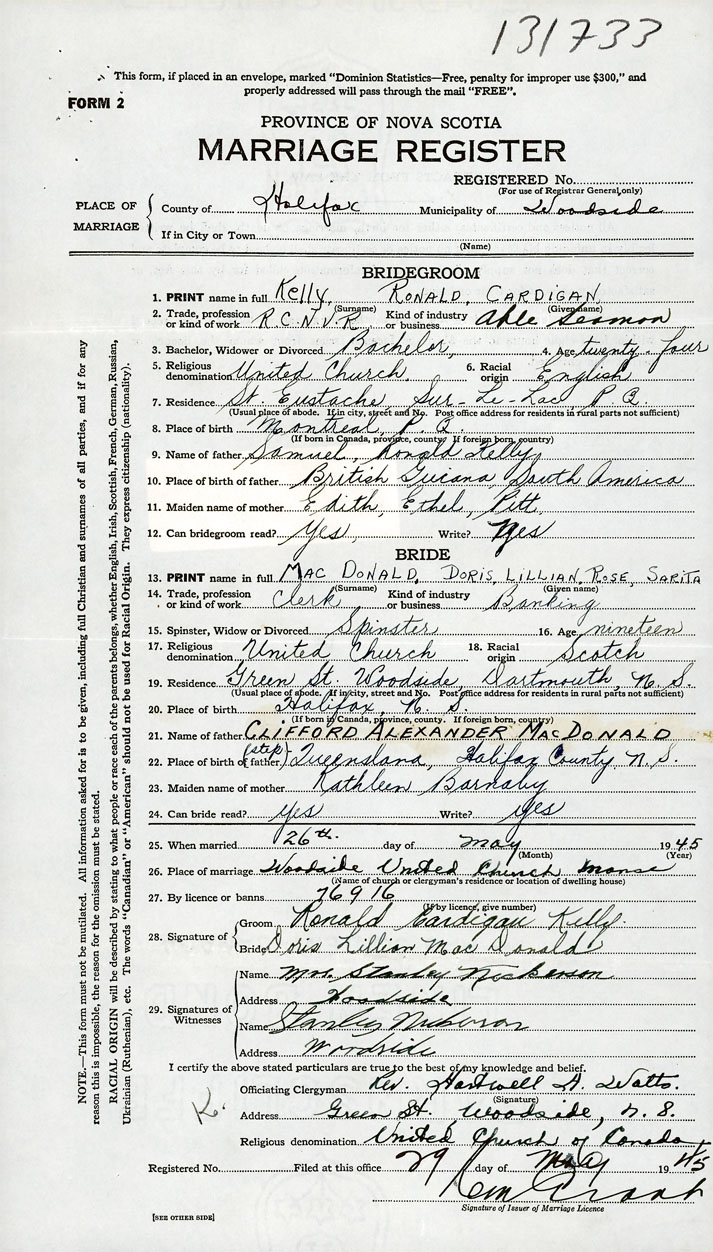 131733
This form, if placed in an envelope, marked "Dominion Statistics—Free, penalty for improper use $300," and
properly addressed will pass through the mail "FREE".
FORM 2
PROVINCE OF NOVA SCOTIA
MARRIAGE REGISTER
REGISTERED No.
(For use of Registrar General only)
PLACE OF MARRIAGE
County of Halifax Municipality of Woodside
If in City or Town
(Name)
BRIDEGROOM
1. PRINT name in full Kelly, RONALD, CARDIGAN
(Surname) (Given name)
2. Trade, profession or kind of work R.C.N.V.R. Kind of industry or business Able Seaman
3. Bachelor, Widower or Divorced Bachelor, 4. Age twenty-four
5. Religious denomination United Church. 6. Racial origin English
7. Residence St. Eustache, Sur-Le-Lac, P.Q.
(Usual place of abode. If in city, street and No. Post office address for residents in rural parts not sufficient)
8. Place of birth Montreal, P.Q.
(If born in Canada, province, county. If foreign born, country)
9. Name of father Samuel, Ronald Kelly,
10. Place of birth of father British Guiana, South America
11. Maiden name of mother Edith, Ethel, Pitt.
12. Can bridegroom read? Yes, Write? Yes
BRIDE
13. PRINT name in full MAC DONALD, DORIS, LILLIAN, ROSE, SARITA
(Surname) (Given name)
14. Trade, profession or kind of work Clerk Kind of industry or business Banking
15. Spinster, Widow or Divorced Spinster 16. Age nineteen
17. Religious denomination United Church 18. Racial origin Scotch
19. Residence Green St. Woodside, Dartmouth, N.S.
(Usual place of abode. If in city, street and No. Post office address for residents in rural parts not sufficient)
20. Place of birth Halifax, N.S.
(If born in Canada, province, county. If foreign born, country)
21. Name of father CLIFFORD ALEXANDER MACDONALD
22. Place of birth of (step) father Queensland, Halifax County N.S.
23. Maiden name of mother Kathleen Barnaby
24. Can bride read? yes Write? yes
25. When married 26th. day of May 1945
(Month) (Year)
26. Place of marriage Woodside United Church manse
(Name of church or clergyman's residence or location of dwelling house)
27. By licence or banns 76916
(If by licence, give number)
28. Signature of
Groom Ronald Cardigan Kelly.
Bride Doris Lillian MacDonald
29. Signatures of Witnesses
Name Mrs. Stanley Nickerson
Address Woodside
Name Stanley Nickerson
Address Woodside
I certify the above stated particulars are true to the best of my knowledge and belief.
Officiating Clergyman Rev. Hartwell A. Watts.
(Signature)
K.
Address Green St., Woodside, N.S.
Religious denomination United Church of Canada
Registered No. Filed at this office 29 day of May 1945
Signature of Issuer of Marriage Licence
[SEE OTHER SIDE]
NOTE.—This form must not be mutilated. All information asked for is to be given, including full Christian and surnames of all parties, and if for any
reason this is impossible, the reason for the omission must be stated.
RACIAL ORIGIN will be described by stating to what people or race each of the parents belongs, whether English, Irish, Scottish, French, German, Russian,
Ukrainian (Ruthenian), etc. The words "Canadian" or "American" should not be used for Racial Origin. They express citizenship (nationality).